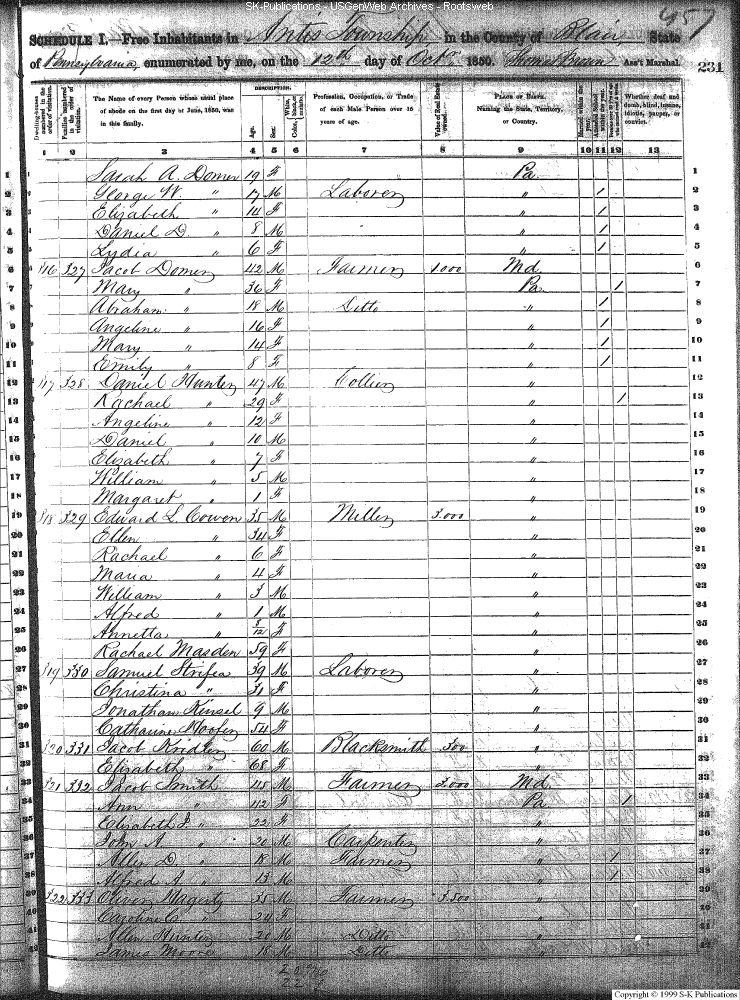 SK-Publications - USGenWeb Archives - Rootsweb
457
SCHEDULE I.—Free Inhabitants in Antis Township in the County of Blair State
of Pennsylvania, enumerated by me, on the 12th day of Octr 1850. Thomas Ass't Marshal. 231
DESCRIPTION.
Dwelling-houses numbered in the order of visitation. Families numbered in the order of visitation. The Name of every Person whose usual place of abode on the first day of June, 1850, was in this family. Age. Sex. White, black, or mulatto. Color, Profession, Occupation, or Trade of each Male Person over 15 years of age. Value of Real Estate owned. PLACE OF BIRTH. Naming the State, Territory, or Country. Married within the year. Attended School within the year. Whether deaf and dumb, blind, insane, idiotic, pauper, or convict.
1 2 3 4 5 6 7 8 9 10 11 12 13
1 Sarah A. Domer 19 F Pa. 1
2 George W. " 17 M Laborer " / 2
3 Elizabeth " 14 F " / 3
4 Daniel D. " 8 M " / 4
5 Lydia " 6 F " / 5
6 316 327 Jacob Domer 42 M Farmer 1.000 Md. 6
7 Mary " 36 F Pa. / 7
8 Abraham " 18 M Ditto " / 8
9 Angeline " 16 F " / 9
10 Mary " 14 F " / 10
11 Emily " 8 F " / 11
12 317 328 Daniel Hunter 47 M Collier " 12
13 Rachael " 29 F " / 13
14 Angeline " 12 F " 14
15 Daniel " 10 M " 15
16 Elizabeth " 7 F " 16
17 William " 5 M " 17
18 Margaret " 1 F " 18
19 318 329 Edward L. Cowen 35 M Miller 3.000 " 19
20 Ellen " 34 F " 20
21 Rachael " 6 F " 21
22 Maria " 4 F " 22
23 William " 3 M " 23
24 Alfred " 1 M " 24
25 Annetta " F " 25
26 Rachael Masden 59 F " 26
27 319 330 Samuel 39 M Laborer " 27
28 Christina " 31 F " 28
29 Jonathan Kinsel 9 M " 29
30 Catharine Hoofer 54 F " 30
31 320 331 Jacob Kridler 60 M Blacksmith 300 " 31
32 Elizabeth " 68 F " 32
33 321 332 Jacob Smith 48 M Farmer Md. 33
34 Ann " 42 F Pa. / 34
35 Elizabeth J. " 22 F " 35
36 John A. " 20 M Carpenter " 36
37 D. " 18 M Farmer " / 37
38 Alfred A. " 13 M " / 38
39 322 333 Oliver Hagerty 35 M Farmer 3.500 " 39
40 Caroline C. " 24 F " 40
41 Allen Hunter 20 M Ditto " 41
42 James Moore 18 M Ditto " 42
Copyright © 1999 S-K Publications